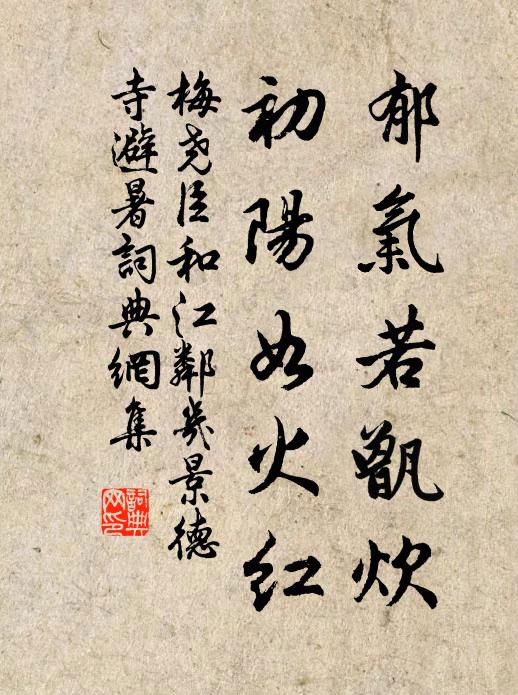 郁氣若甑炊
初陽如火紅
梅堯臣和江鄰幾景德
寺避暑詞典網集
詞典
网印